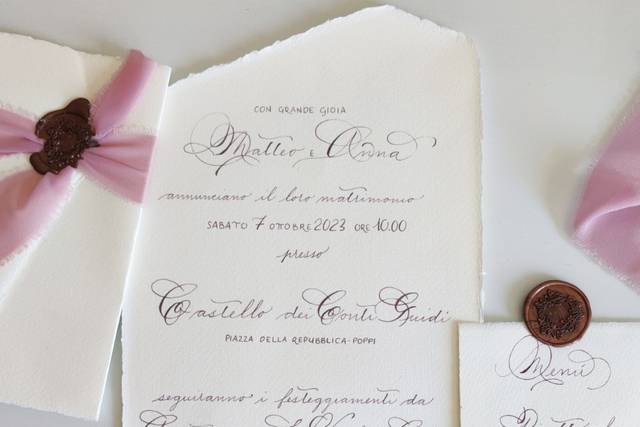 CON GRANDE GIOIA
Matteo e Anna
annunciano il loro matrimonio
SABATO 7 OTTOBRE 2023 ORE 10.00
presso
Castello dei Conti Guidi
PIAZZA DELLA REPUBBLICA-POPPI
seguiranno i festeggiamenti da
Menù